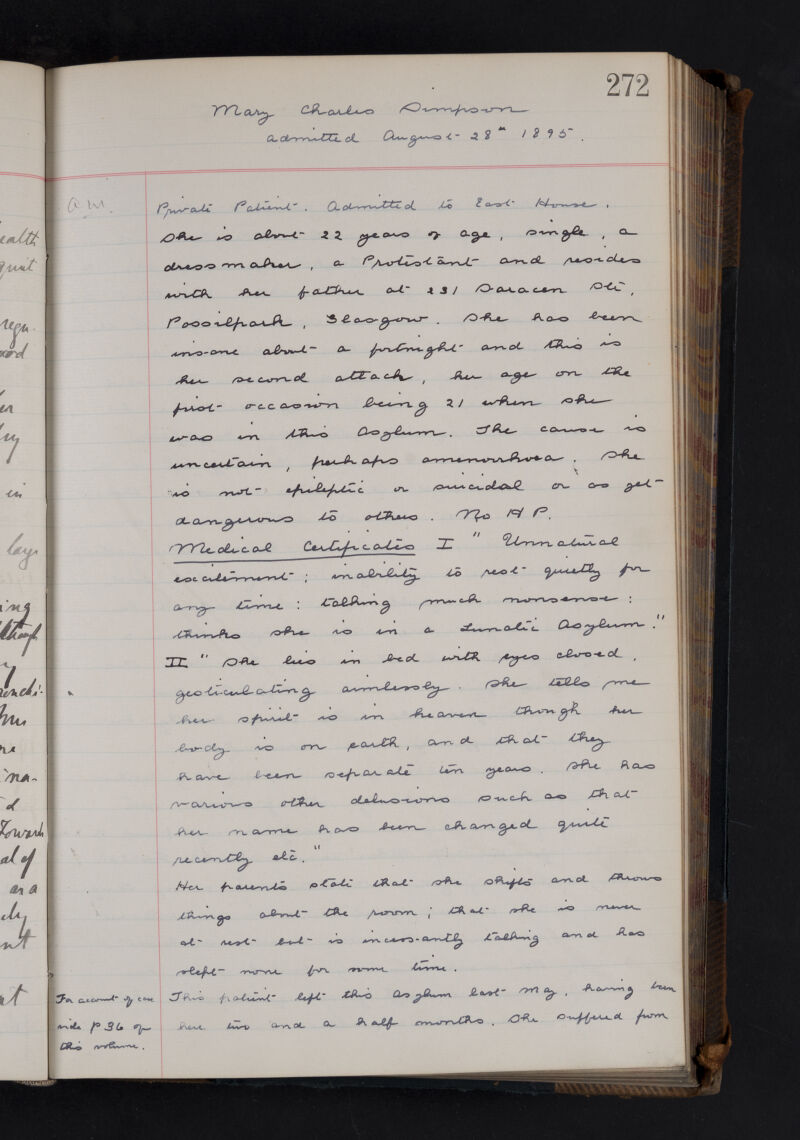 272
Mary Charles Simpson
admitted August 28th 1895.
Private Patient. Admitted to East House.
She is about 22 years of age, single, a
dressmaker, a Protestant and resides
with her father at 231 Saracen St.,
Possilpark, Glasgow. She has been
insane about a fortnight and this is
her second attack, her age on the
first occasion being 21 when she
was in this Asylum. The cause is
uncertain, perhaps amenorrhoea. She
is not epileptic or suicidal or as yet
dangerous to others. No H P.
Medical Certificates I " Unnatural
excitement; inability to rest quietly for
any time: talking much nonsense:
thinks she is in a Lunatic Asylum."
II " She lies in bed with eyes closed,
gesticulating aimlessly. She tells me
her spirit is in heaven though her
body is on earth, and that they
have been separate ten years. She has
various other delusions such as that
her name has been changed quite
recently etc."
Her parents state that she shifts and throws
things about the room; that she is never
at rest but is incessantly talking and has
slept none for some time.
For account of case
vide p 36 of
this volume.
This patient left this asylum last May, having been
here two and a half months. She suffered from